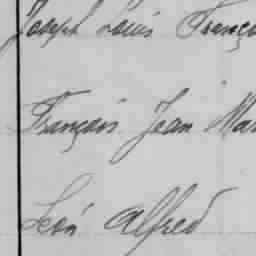 Joseph Louis Franço
François Jean Mar
Léon Alfred